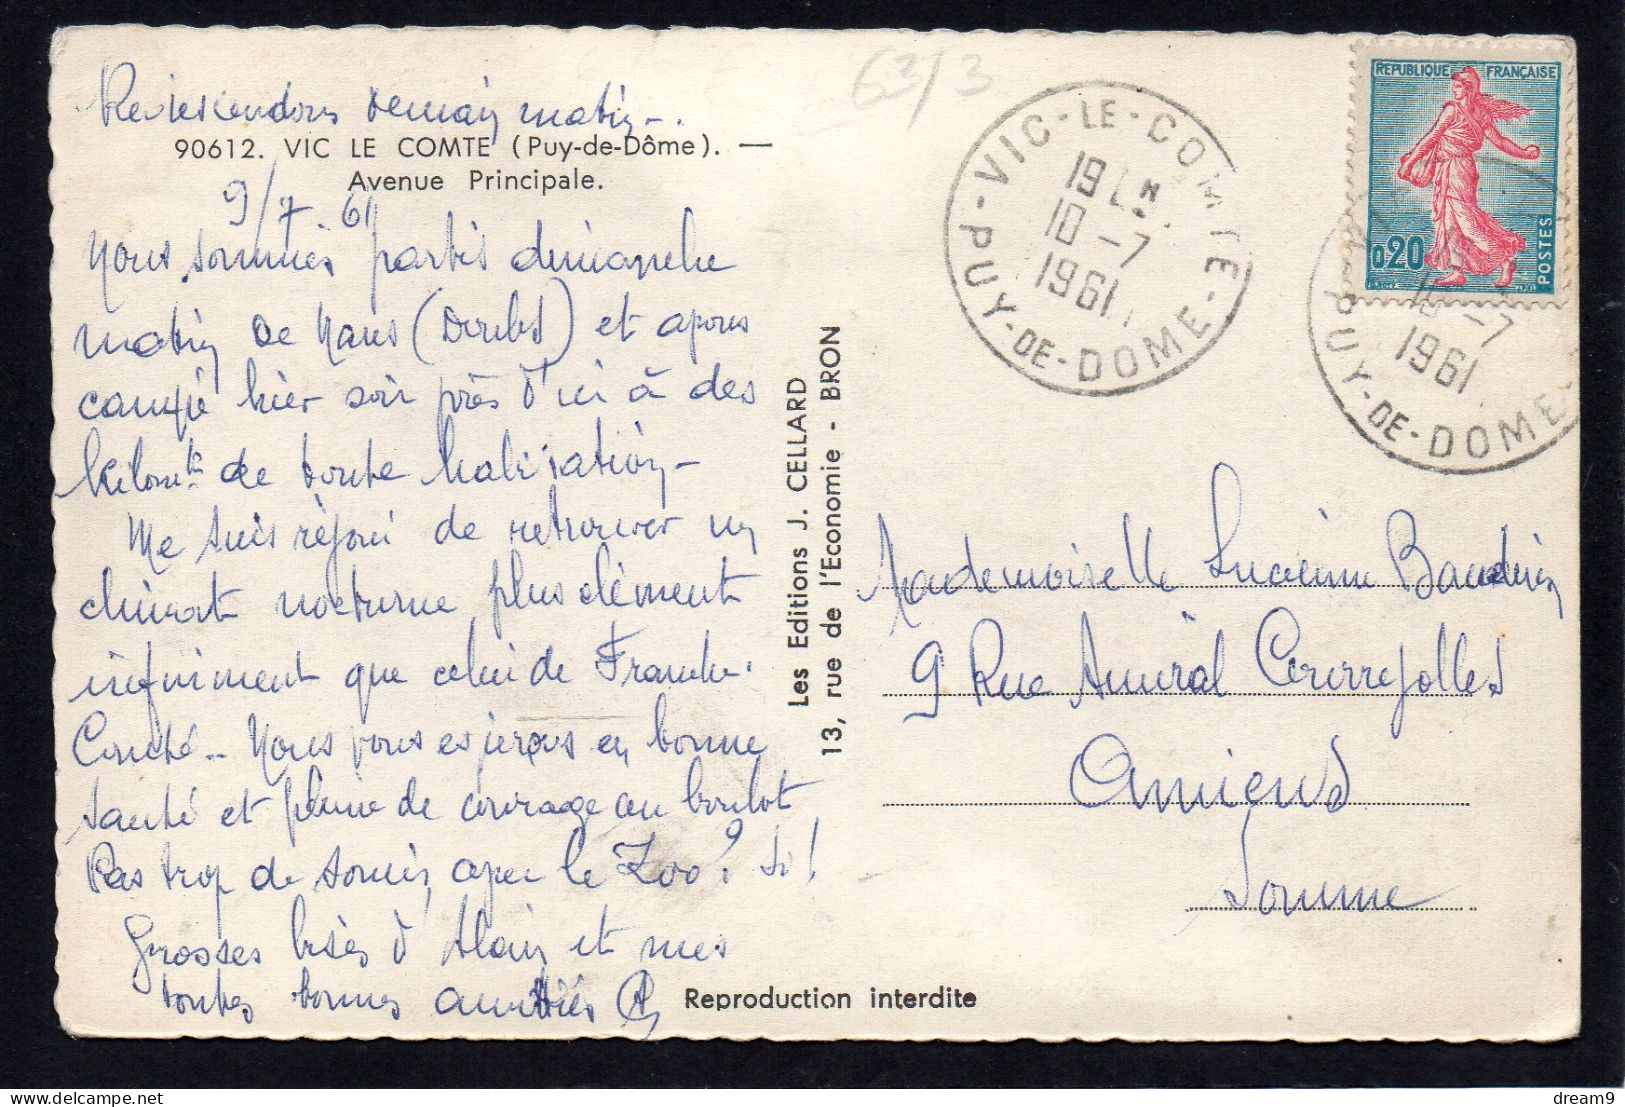 Redescendons demain matin -.
90612. VIC LE COMTE (Puy-de-Dôme). —
Avenue Principale.
9/7.61
Nous sommes partis dimanche
matin de Nans (Doubs) et avons
campé hier soir près d'ici à des
kilom. de toute habitation -
Me suis réjoui de retrouver un
climat nocturne plus clément
infiniment que celui de Franche-
Comté.. Nous vous espérons en bonne
santé et pleine de courage au boulot
Pas trop de soucis avec le Zoo? Si!
Grosses bises d'Alain et mes
toutes bonnes amitiés
Les Editions J. CELLARD
13, rue de l'Economie - BRON
Reproduction interdite
6213
VIC-LE-COMTE
19
10-7
1961
PUY-DE-DOME
REPUBLIQUE FRANÇAISE
0,20
POSTES
10-7
1961
PUY-DE-DOME
Mademoiselle Lucienne Baudin
9 Rue Amiral Courrejolles
Amiens
Somme
delcampe.net
dream9